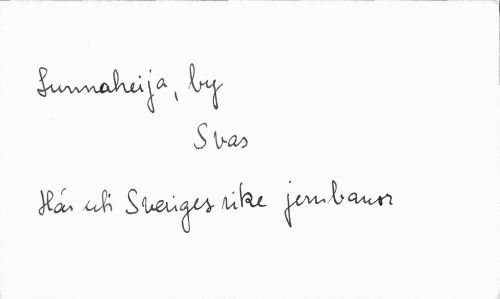 Sunnaheija, by
Svas
Här uti Sveriges rike jernbanor